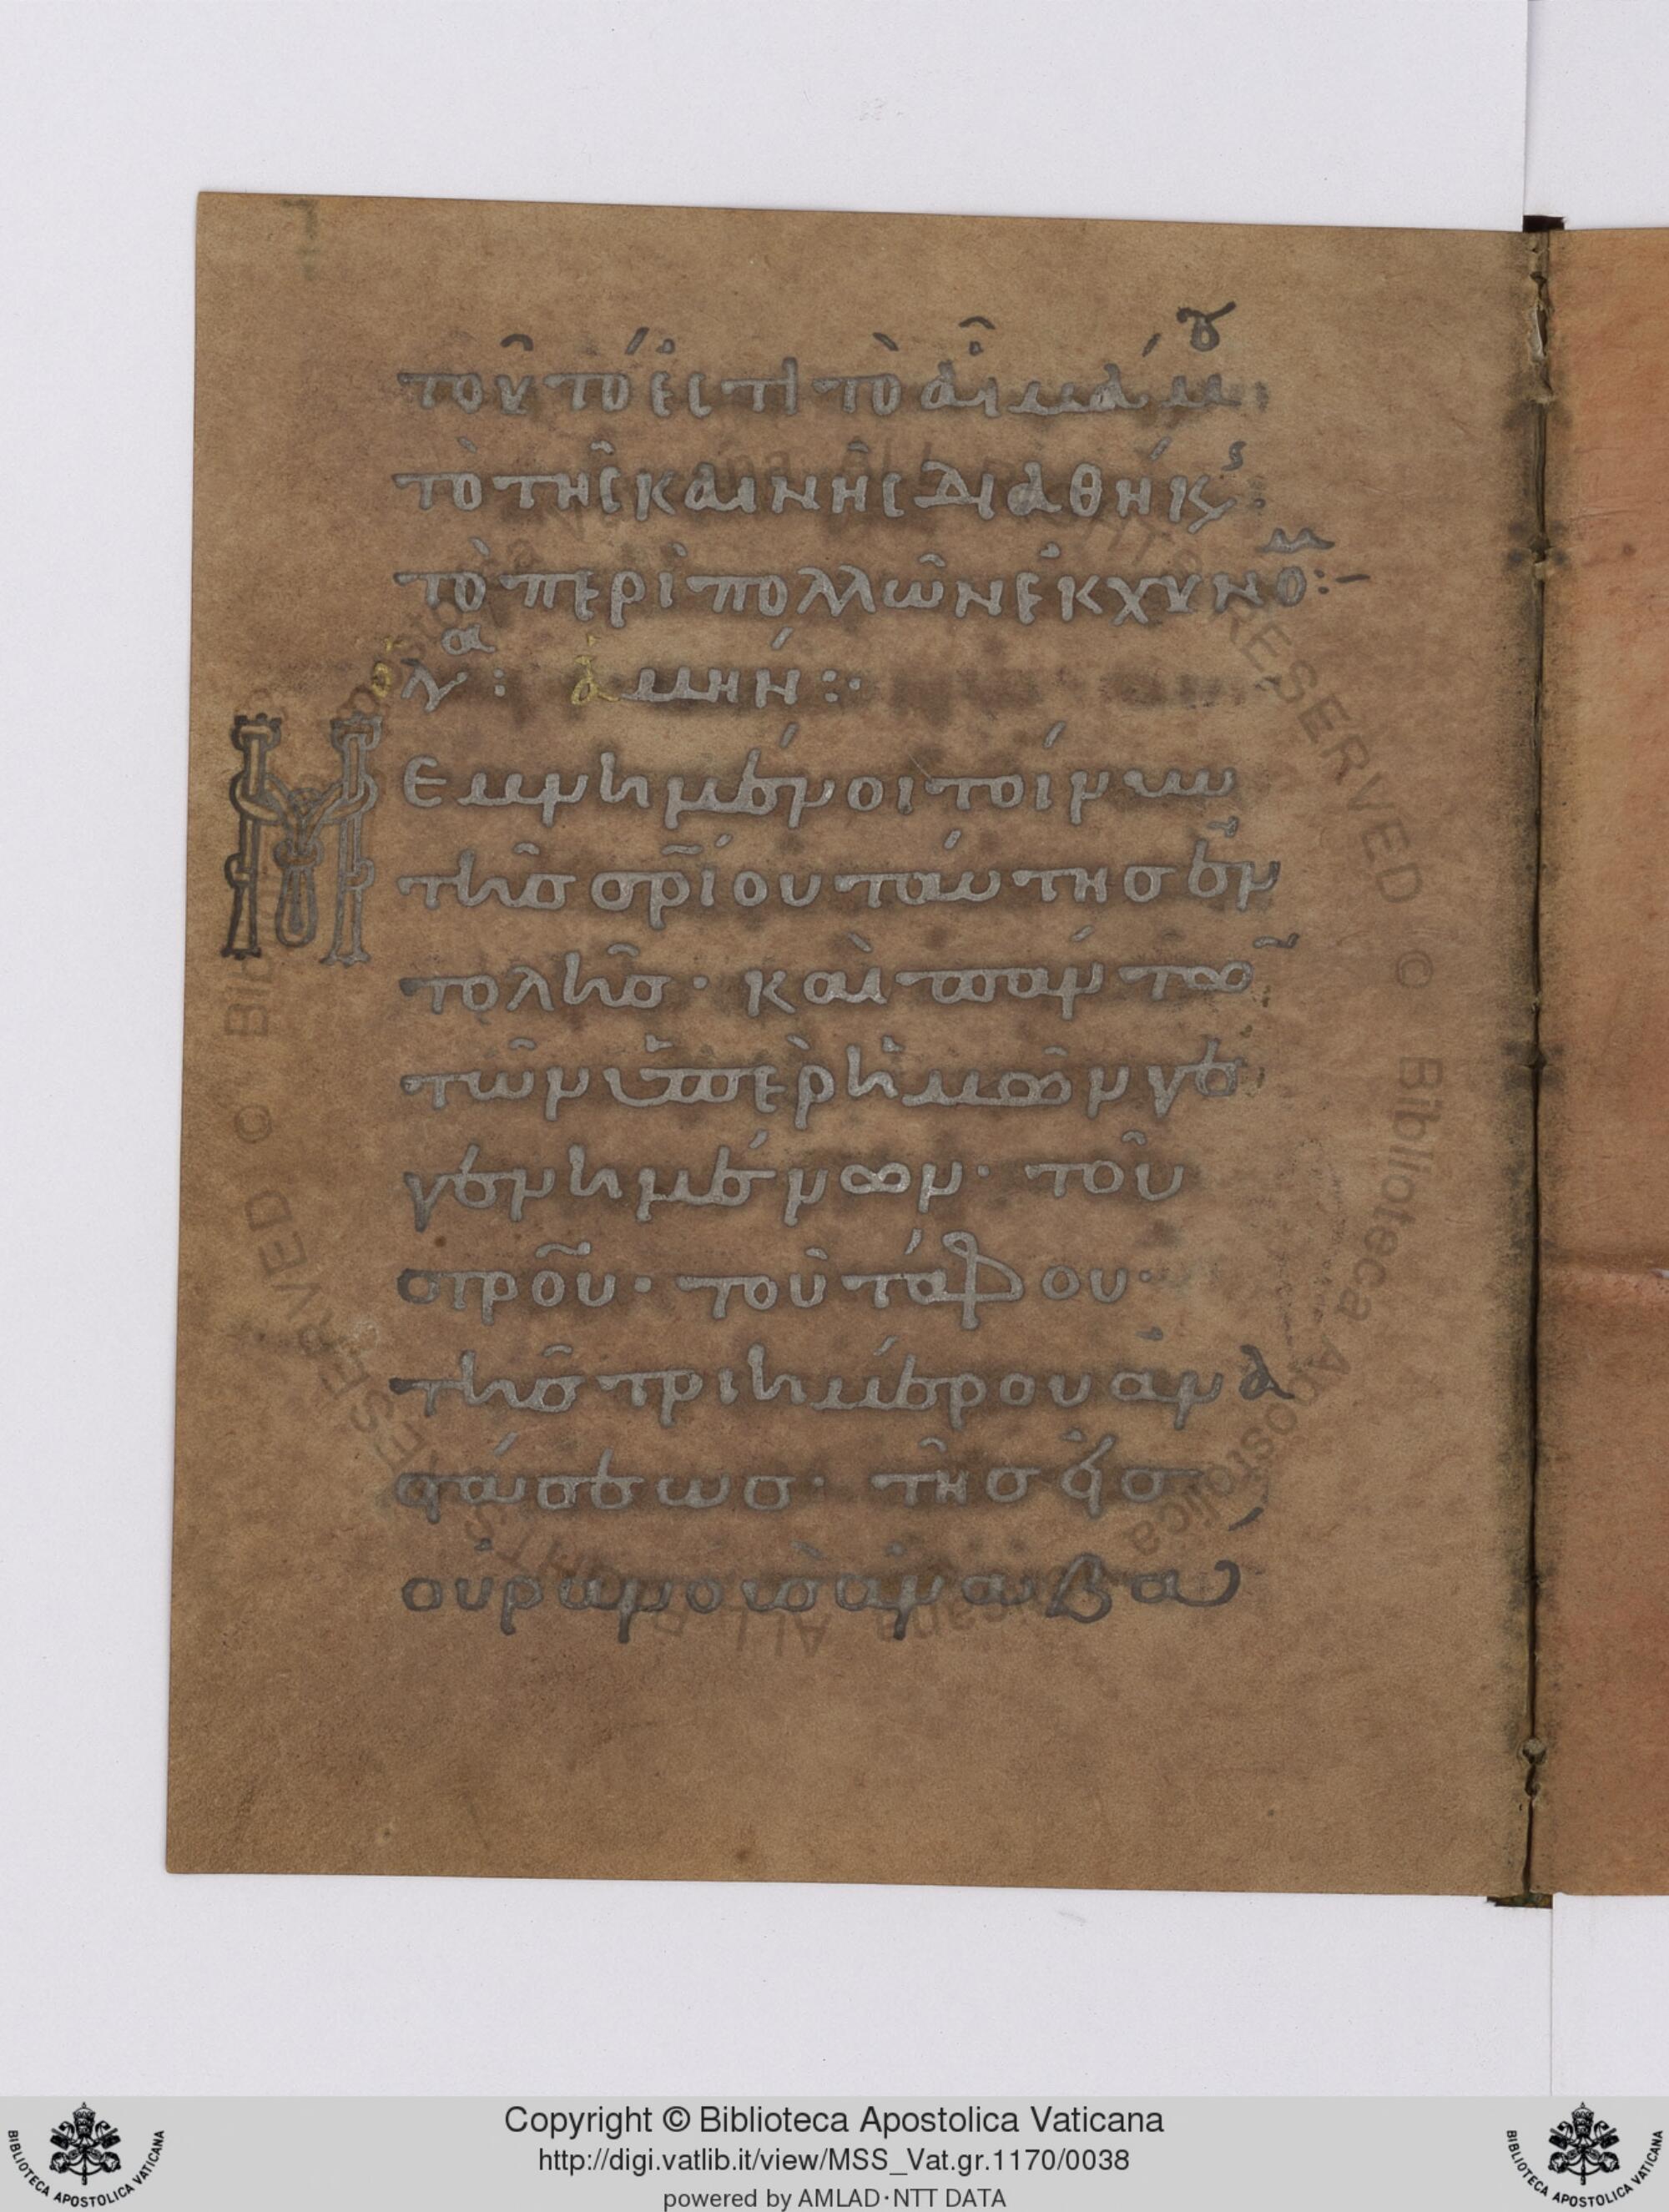 τοῦτό ἐστι τὸ αἷμά μου:
τὸ τῆς καινῆς διαθήκης:
τὸ περὶ πολλῶν ἐκχυνόμ:-
ὁ λα: ἀμήν:·
Μεμνημένοι τοίνυν
τῆς σρίου ταύτης ἐν
τολῆς· καὶ πάντων
τῶν ὑπὲρ ἡμῶν γε
γενημένων· τοῦ
στροῦ· τοῦ τάφου·
τῆς τριημέρου ἀνα
στάσεως· τῆς εἰς
οὐρανοὺς ἀναβά
Copyright © Biblioteca Apostolica Vaticana
http://digi.vatlib.it/view/MSS_Vat.gr.1170/0038
powered by AMLAD·NTT DATA
BIBLIOTECA APOSTOLICA VATICANA
BIBLIOTECA APOSTOLICA VATICANA